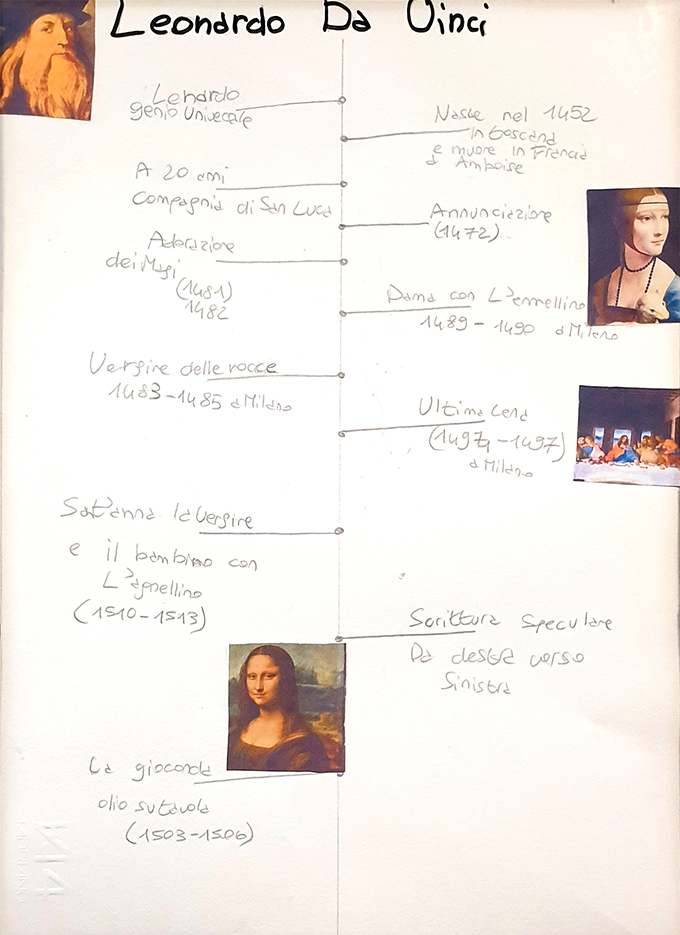 Leonardo Da Vinci
Lenardo
genio Univecale
Nasce nel 1452
in toscana
e muore in Francia
a Amboise
A 20 anni
Compagnia di San Luca
Annunciazione
(1472)
Adorazione
dei Magi
(1481)
1482
Dama con L'ermellino
1489-1490 a Milano
Vergine delle rocce
1483-1485 a Milano
Ultima cena
(1494-1497)
a Milano
Sant'anna la Vergine
e il bambino con
L'agnellino
(1510-1513)
Scrittura speculare
Da destra verso
sinistra
La gioconda
olio su tavola
(1503-1506)